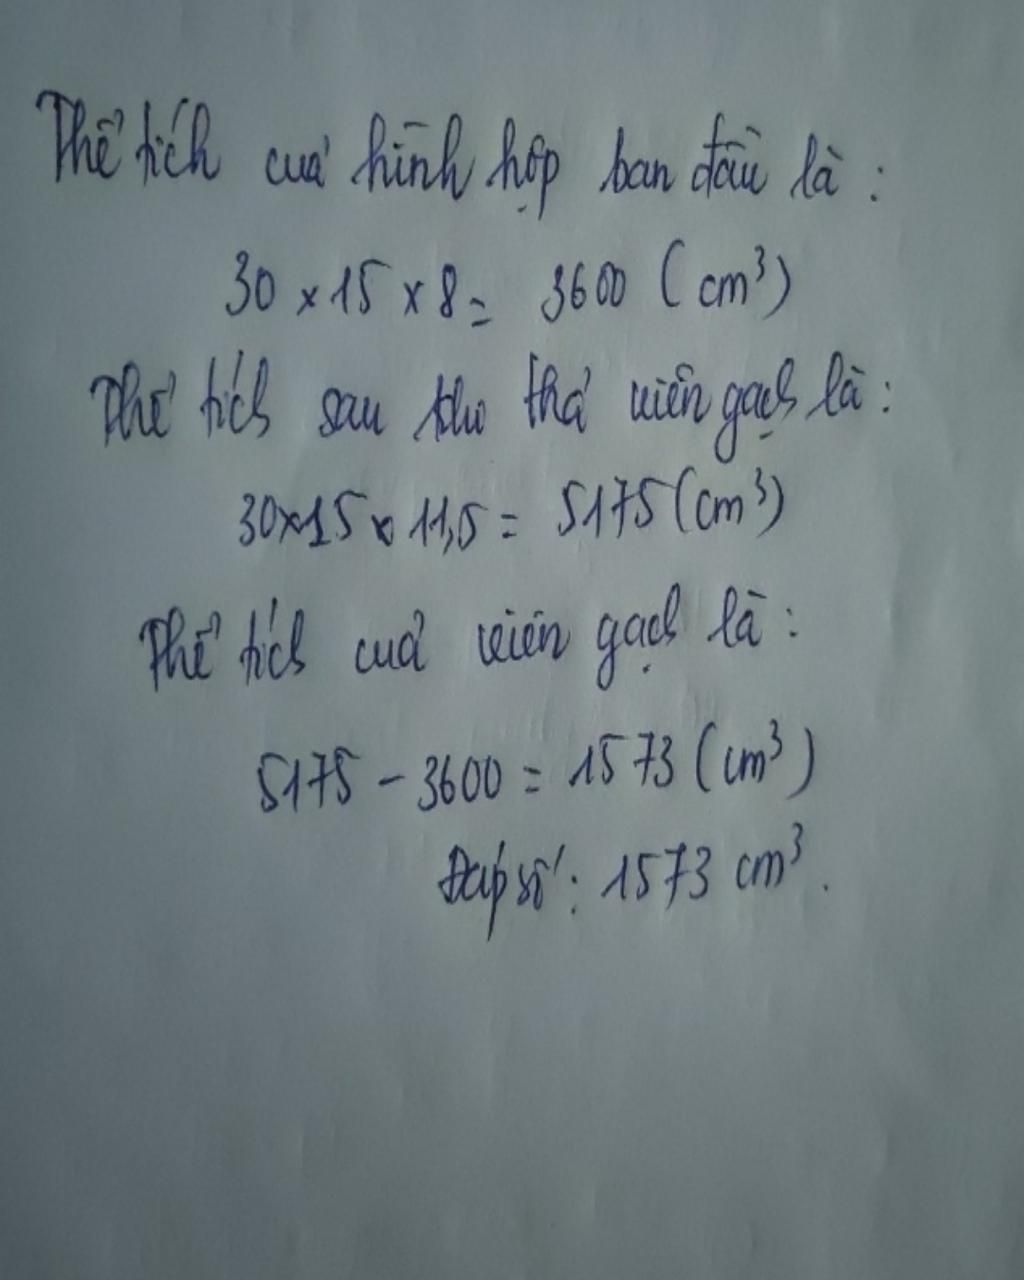 Thể tích cuả hình hộp ban đầu là :
30 × 15 × 8 = 3600 ( cm³ )
Thể tích sau khi thả viên gạch là :
30 × 15 × 11,5 = 5175 ( cm³ )
Thể tích cuả viên gạch là :
5175 - 3600 = 1573 ( cm³ )
Đáp số : 1573 cm³ .